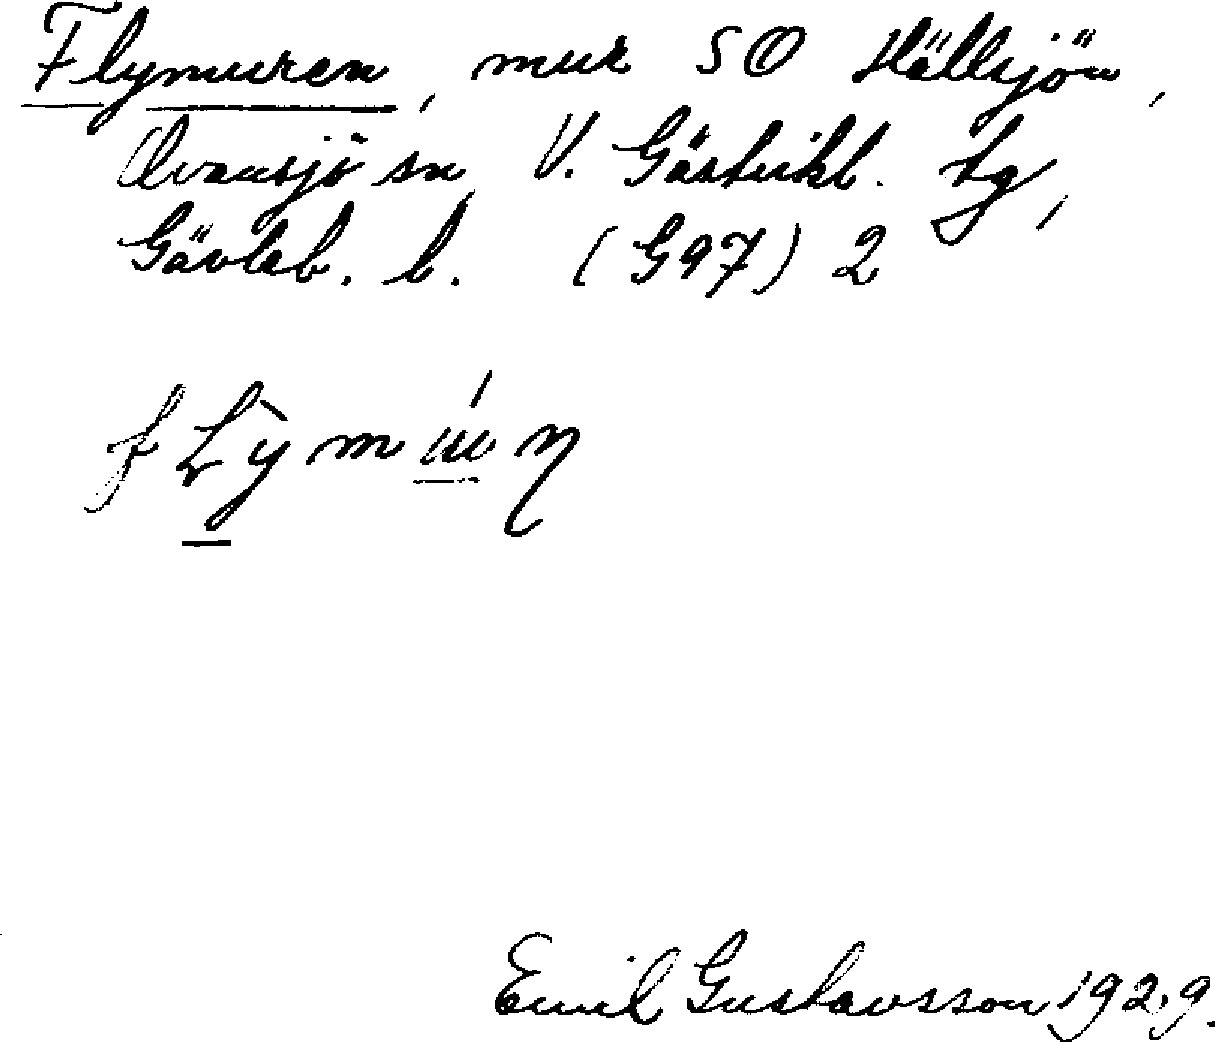 Flymuren, mur SO Hällsjön,
Ovansjö sn, V. Gästrikl. tg,
Gävleb. l. (G97) 2
Emil Gustavsson 1929.